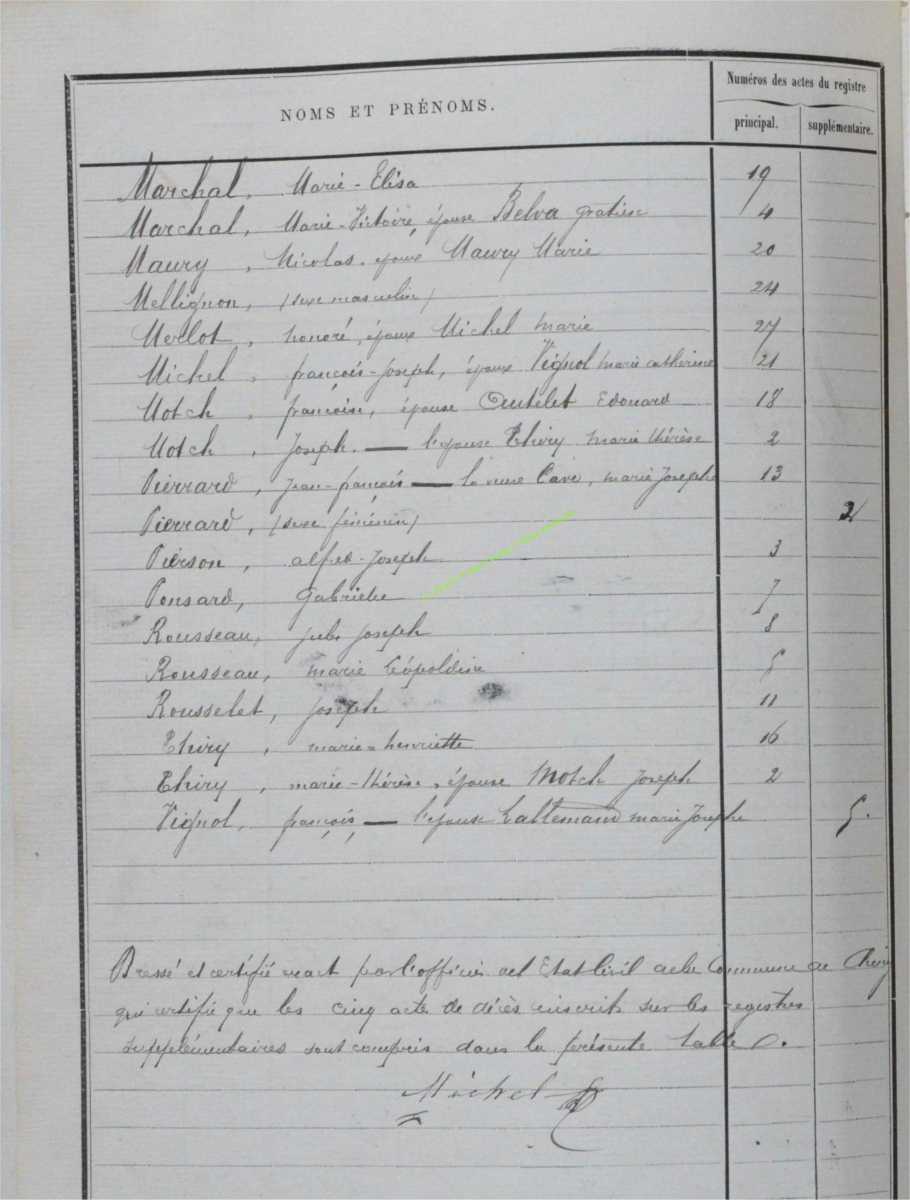 Numéros des actes du registre
NOMS ET PRÉNOMS.
principal. supplémentaire.
Marchal, Marie-Elisa 19
Marchal, Marie-Victoire, épouse Belva gratien 4
Maury, Nicolas, époux Maury Marie 20
Mellignon, (sexe masculin) 24
Merlot, honoré, époux Michel marie 27
Michel, françois-Joseph, époux Vignol marie catherine 21
Motch, françoise, épouse Outelet Edouard 18
Motch, Joseph. — l'épouse Thiry marie thérèse 2
Pierrard, Jean-françois — la veuve Cave, marie Josephe 13
Pierrard, (sexe féminin) 2
Pierson, alfred-Joseph 3
Ponsard, Gabrielle 7
Rousseau, jules Joseph 8
Rousseau, marie Léopoldine 5
Rousselet, Joseph 11
Thiry, marie-henriette 16
Thiry, marie-thérèse, épouse Motch Joseph 2
Vignol, françois, — l'épouse Lallemand marie Josephe 5.
Dressé et certifié exact par l'officier de l'Etat Civil de la Commune de
qui certifie que les cinq acte de décès inscrits sur les registres
supplémentaires sont compris dans la présente table.
Michel